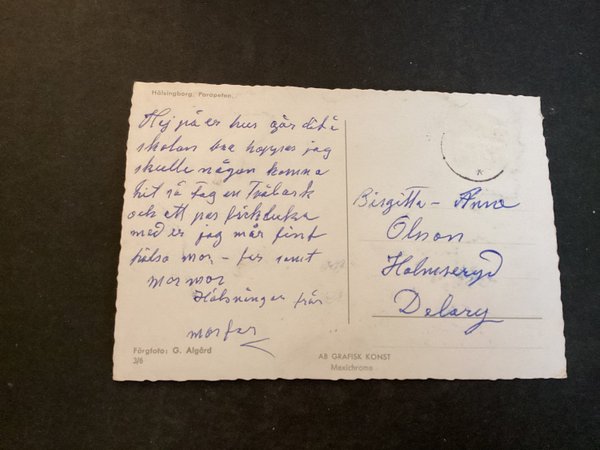 Hälsingborg. Parapeten.
Hej på er hur går det i
skolan bra hoppas jag
skulle någon komma
hit så tag en Trälark
och ett par förkläden
med er jag mår fint
hälsa mor - far samt
mormor
Hälsningar från
morfar
Birgitta - Anne
Olson
Holmseryd
Delary
Färgfoto: G. Algård
3/6
AB GRAFISK KONST
Mexichrome